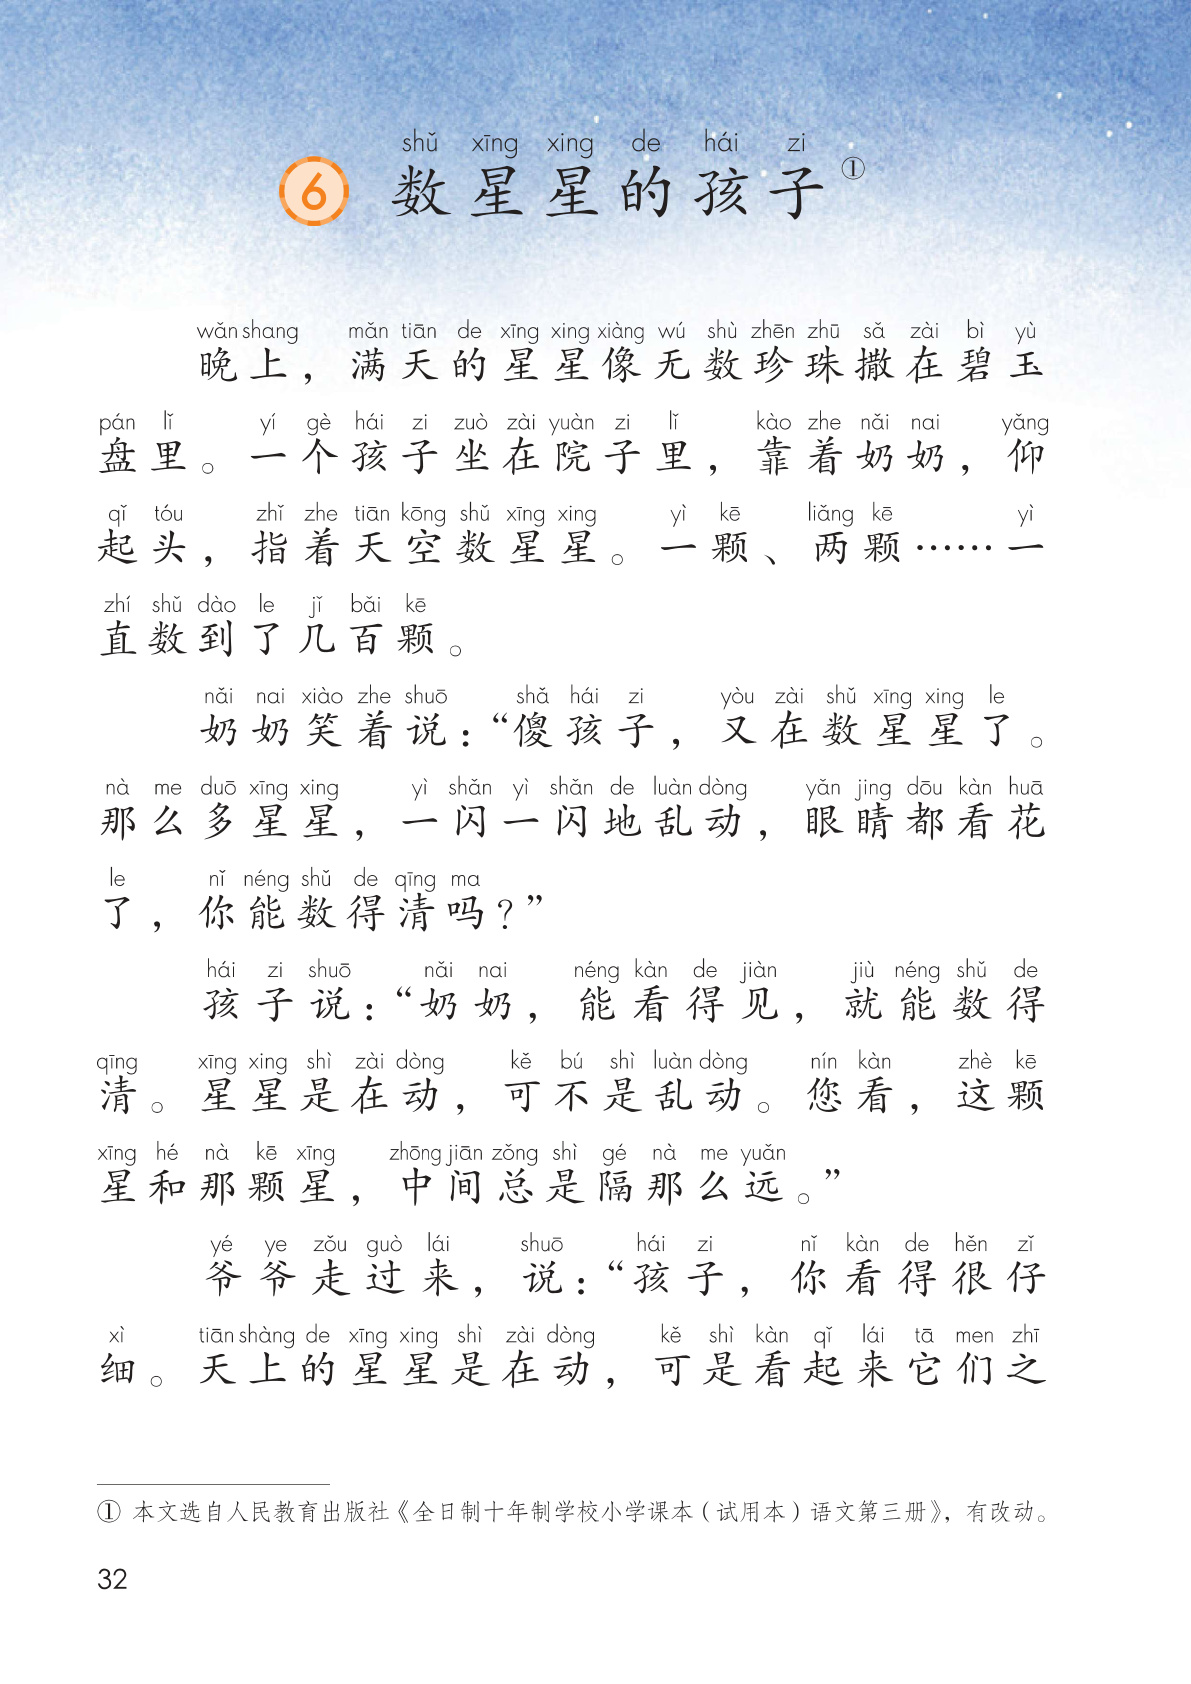 shǔ xīng xing de hái zi
6 数星星的孩子①
wǎn shang mǎn tiān de xīng xing xiàng wú shù zhēn zhū sǎ zài bì yù
晚上，满天的星星像无数珍珠撒在碧玉
pán lǐ yí gè hái zi zuò zài yuàn zi lǐ kào zhe nǎi nai yǎng
盘里。一个孩子坐在院子里，靠着奶奶，仰
qǐ tóu zhǐ zhe tiān kōng shǔ xīng xing yì kē liǎng kē yì
起头，指着天空数星星。一颗、两颗……一
zhí shǔ dào le jǐ bǎi kē
直数到了几百颗。
nǎi nai xiào zhe shuō shǎ hái zi yòu zài shǔ xīng xing le
奶奶笑着说：“傻孩子，又在数星星了。
nà me duō xīng xing yì shǎn yì shǎn de luàn dòng yǎn jing dōu kàn huā
那么多星星，一闪一闪地乱动，眼睛都看花
le nǐ néng shǔ de qīng ma
了，你能数得清吗？”
hái zi shuō nǎi nai néng kàn de jiàn jiù néng shǔ de
孩子说：“奶奶，能看得见，就能数得
qīng xīng xing shì zài dòng kě bú shì luàn dòng nín kàn zhè kē
清。星星是在动，可不是乱动。您看，这颗
xīng hé nà kē xīng zhōng jiān zǒng shì gé nà me yuǎn
星和那颗星，中间总是隔那么远。”
yé ye zǒu guò lái shuō hái zi nǐ kàn de hěn zǐ
爷爷走过来，说：“孩子，你看得很仔
xì tiān shàng de xīng xing shì zài dòng kě shì kàn qǐ lái tā men zhī
细。天上的星星是在动，可是看起来它们之
① 本文选自人民教育出版社《全日制十年制学校小学课本（试用本）语文第三册》，有改动。
32